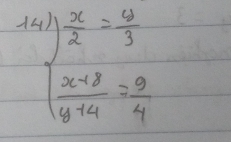 14) x/2 = y/3
x+8/y+4 = 9/4